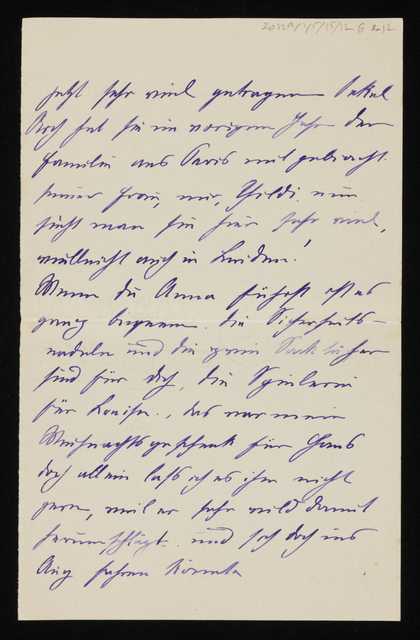 jetzt sehr viel getragen. Onkel
hat sie im vorigen Jahr der
Familie aus Paris mitgebracht.
seiner Frau, mir, nun
sieht man sie hier sehr viel,
vielleicht auch in Leiden!
Wenn du Anna ist es
ganz bequem. die Sicherheits-
nadeln und die zwei Tücher
sind für dich, die
für Louise., das war mein
Weihnachtsgeschenk für Hans
doch allein lass ich es ihm nicht
gern, weil er sehr wild damit
herumschlägt. und sich doch ins
Aug fahren könnte